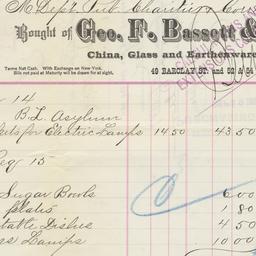 M Dept Pub Charities & Corr
Bought of Geo. F. Bassett &
China, Glass and Earthenware
Terms Net Cash. With Exchange on New York.
Bills not paid at Maturity will be drawn for at sight.
49 BARCLAY ST. and 52 & 54
14
B.L. Asylum
for Electric Lamps 14 50 43 50
15
Sugar Bowls 6 00
plates 1 80
table Dishes 4 50
Lamps 10 00